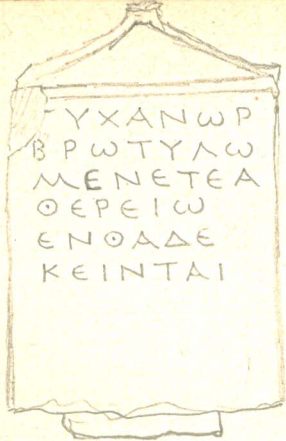 ΤΥΧΑΝωΡ
ΒΡωΤΥΛω
ΜΕΝΕΤΕΑ
ΘΕΡΕΙω
ΕΝΘΑΔΕ
ΚΕΙΝΤΑΙ